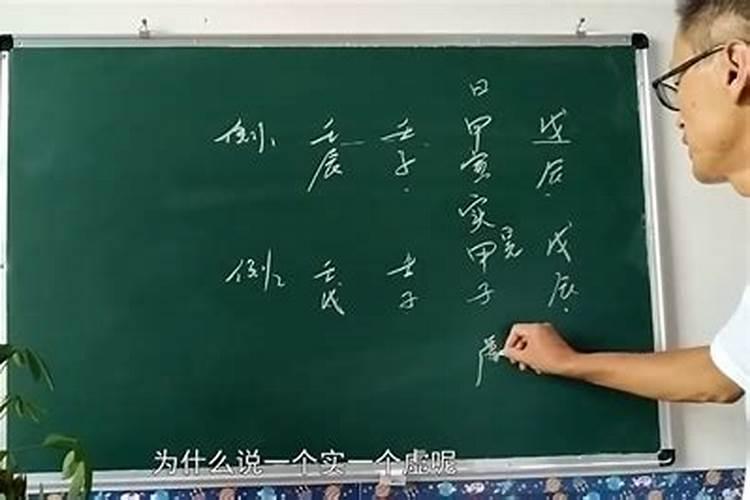 日
例1 壬 壬 甲 戊
辰 子 寅 辰
实
例2 壬 壬 甲 戊
子 子 辰
虚
为什么说一个实一个虚呢